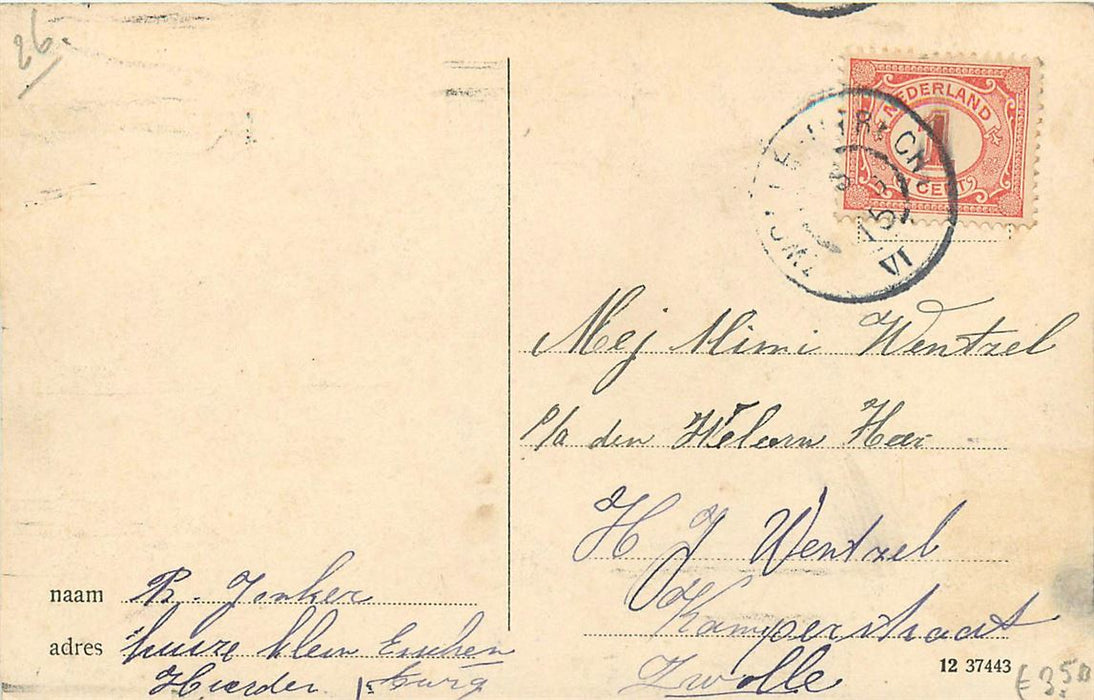 26.
NEDERLAND
1
CENT
15
VI
Mej Mimi Wentzel
p/a den Weledrn Heer
H J Wentzel
Kamperstraat
Zwolle
naam R. Jonker
adres huize klein
Heerder
12 37443
€ 350